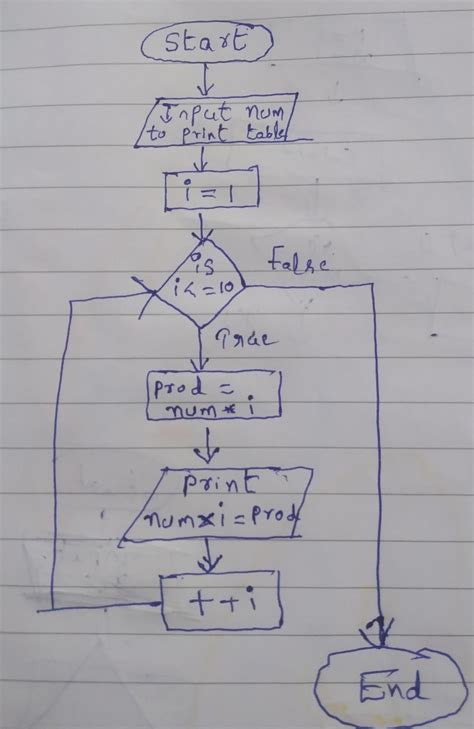 Start
Input num
to print table
i = 1
is
i <= 10
False
True
prod =
num * i
print
num*i=prod
++i
End